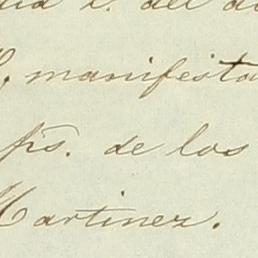 del
manifesta
p̃s. de los
Martinez.